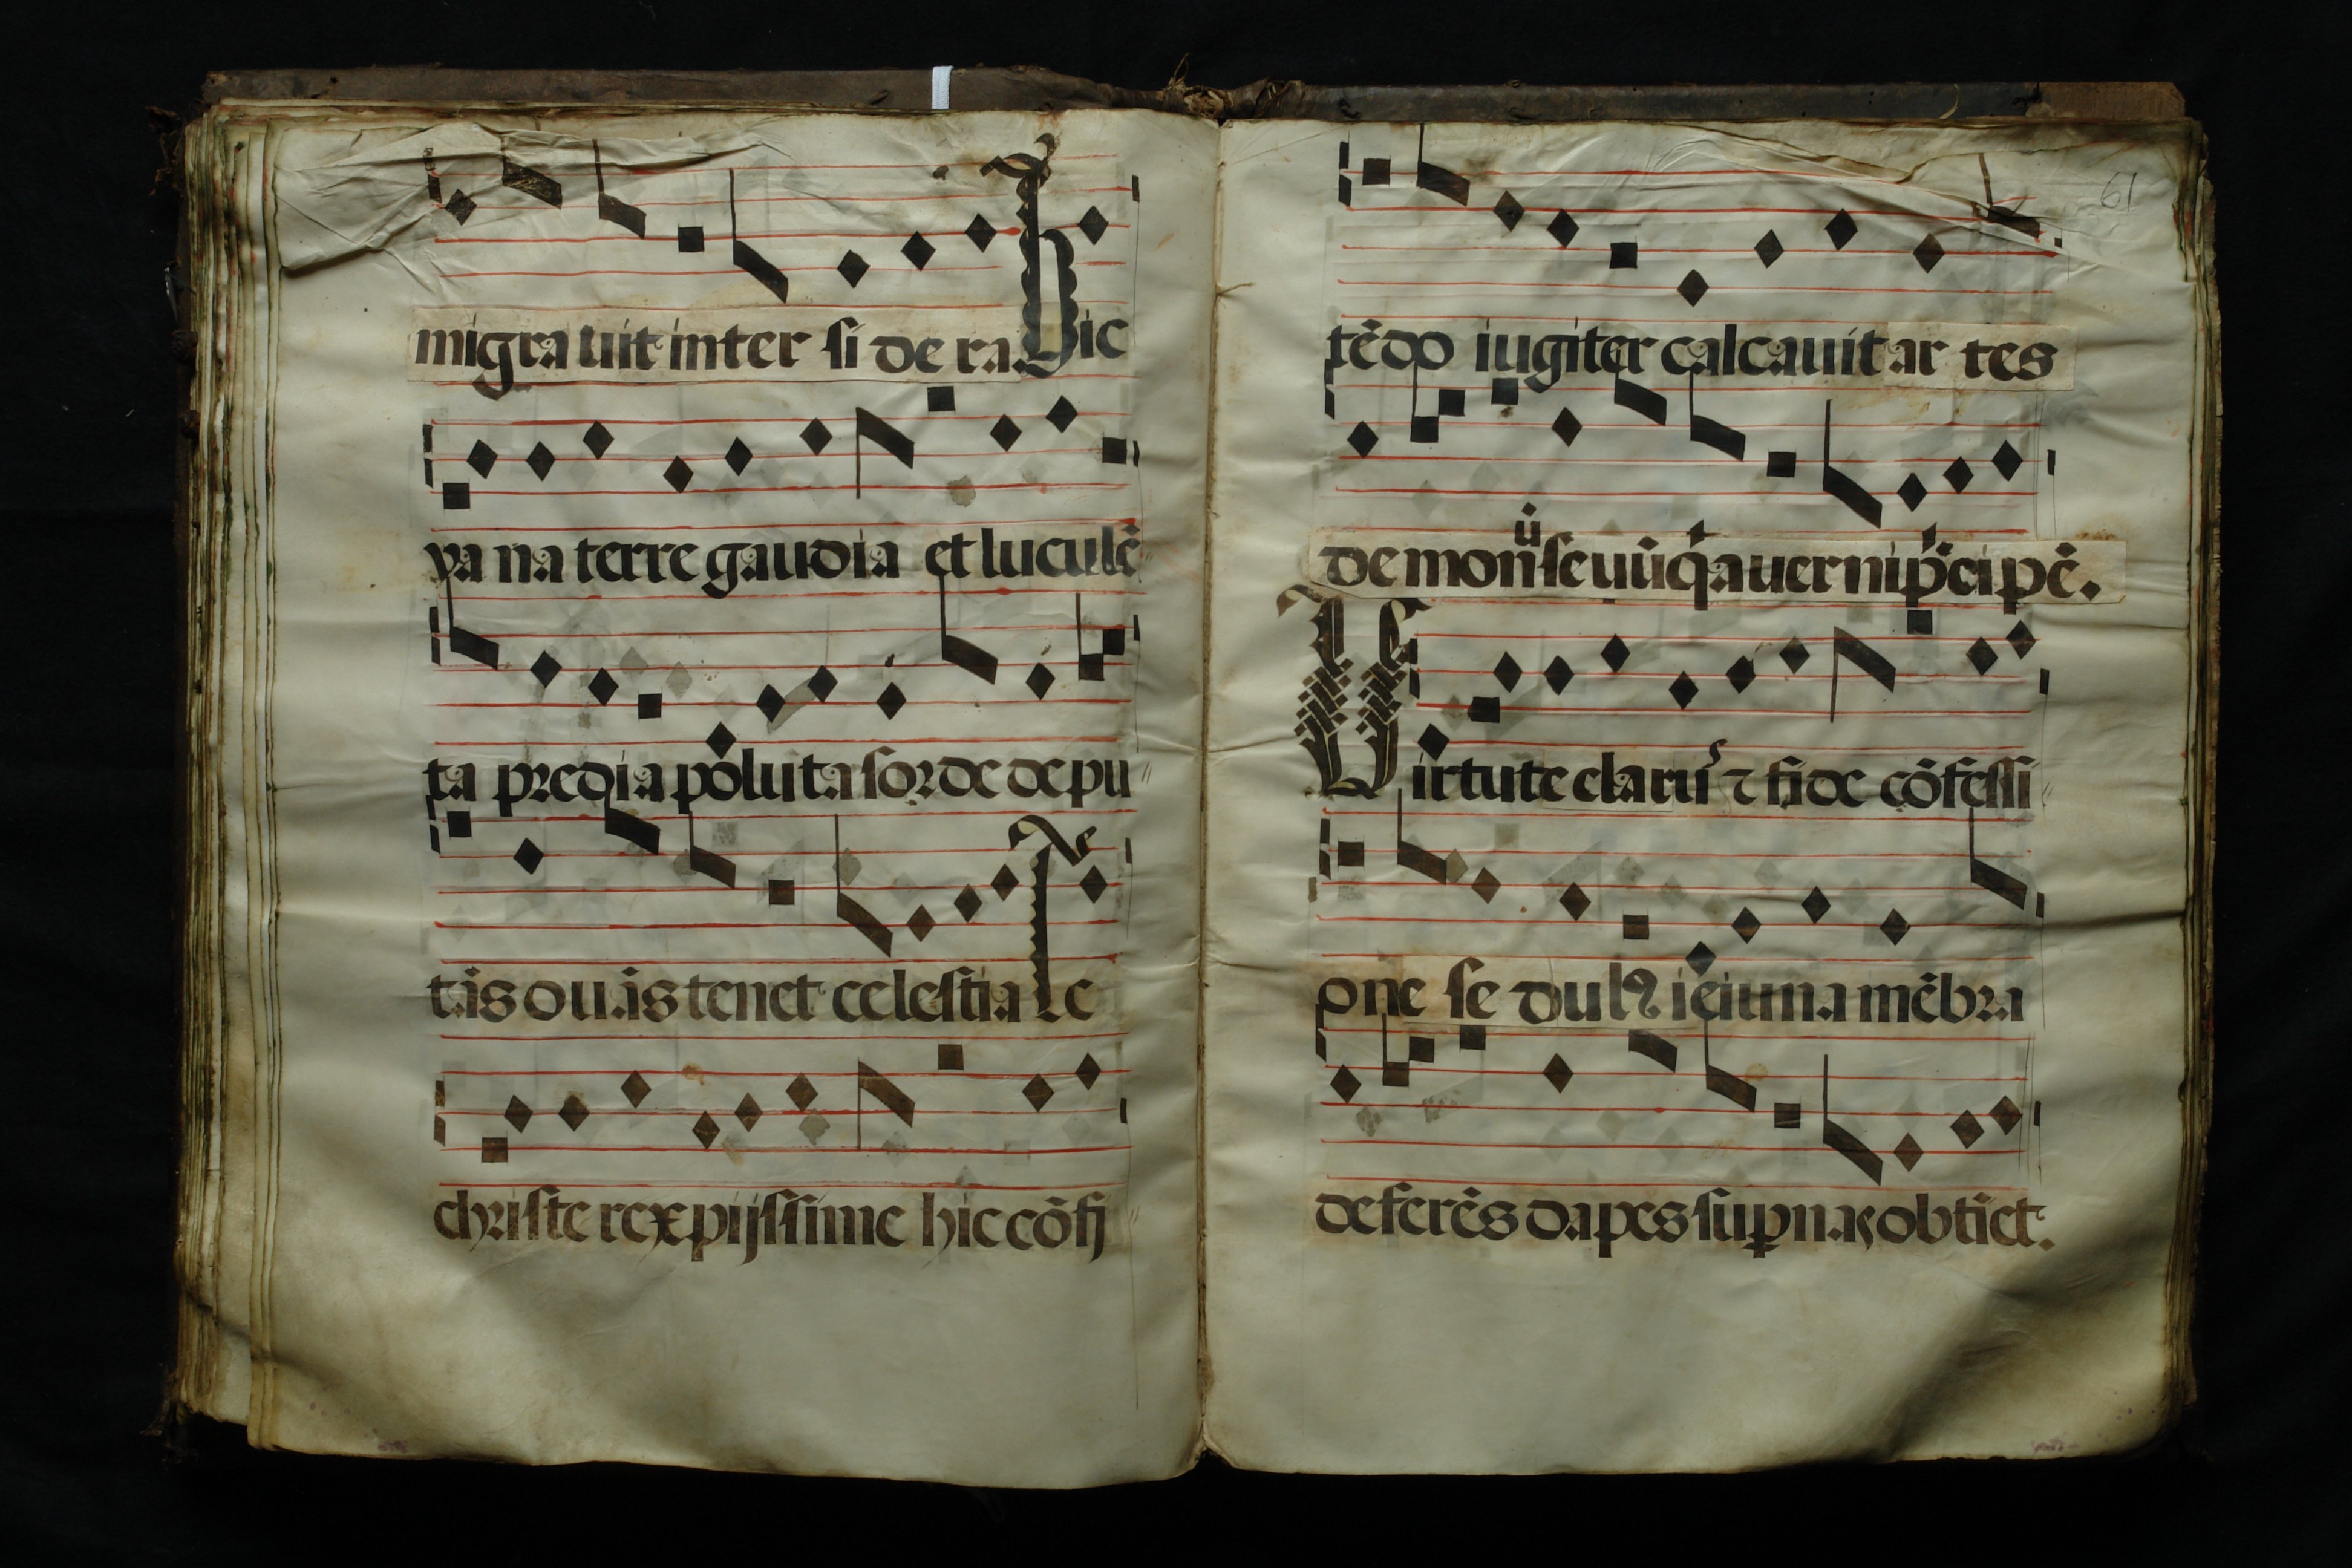 migra uit inter si de ra. Hic
va na terre gaudia et luculẽ
ta predia poluta sorde depu
tãs ouãs tenet celestia Te
christe rex pijssime hic cõfi
61
tẽdo iugiter calcauit ar tes
demonũ seuũq̃ auerni p̃cipẽ.
Virtute clarus ⁊ fide cõfessi
one se dulꝰ ieiuna mẽbra
deferẽs dapes supnas obtiet.